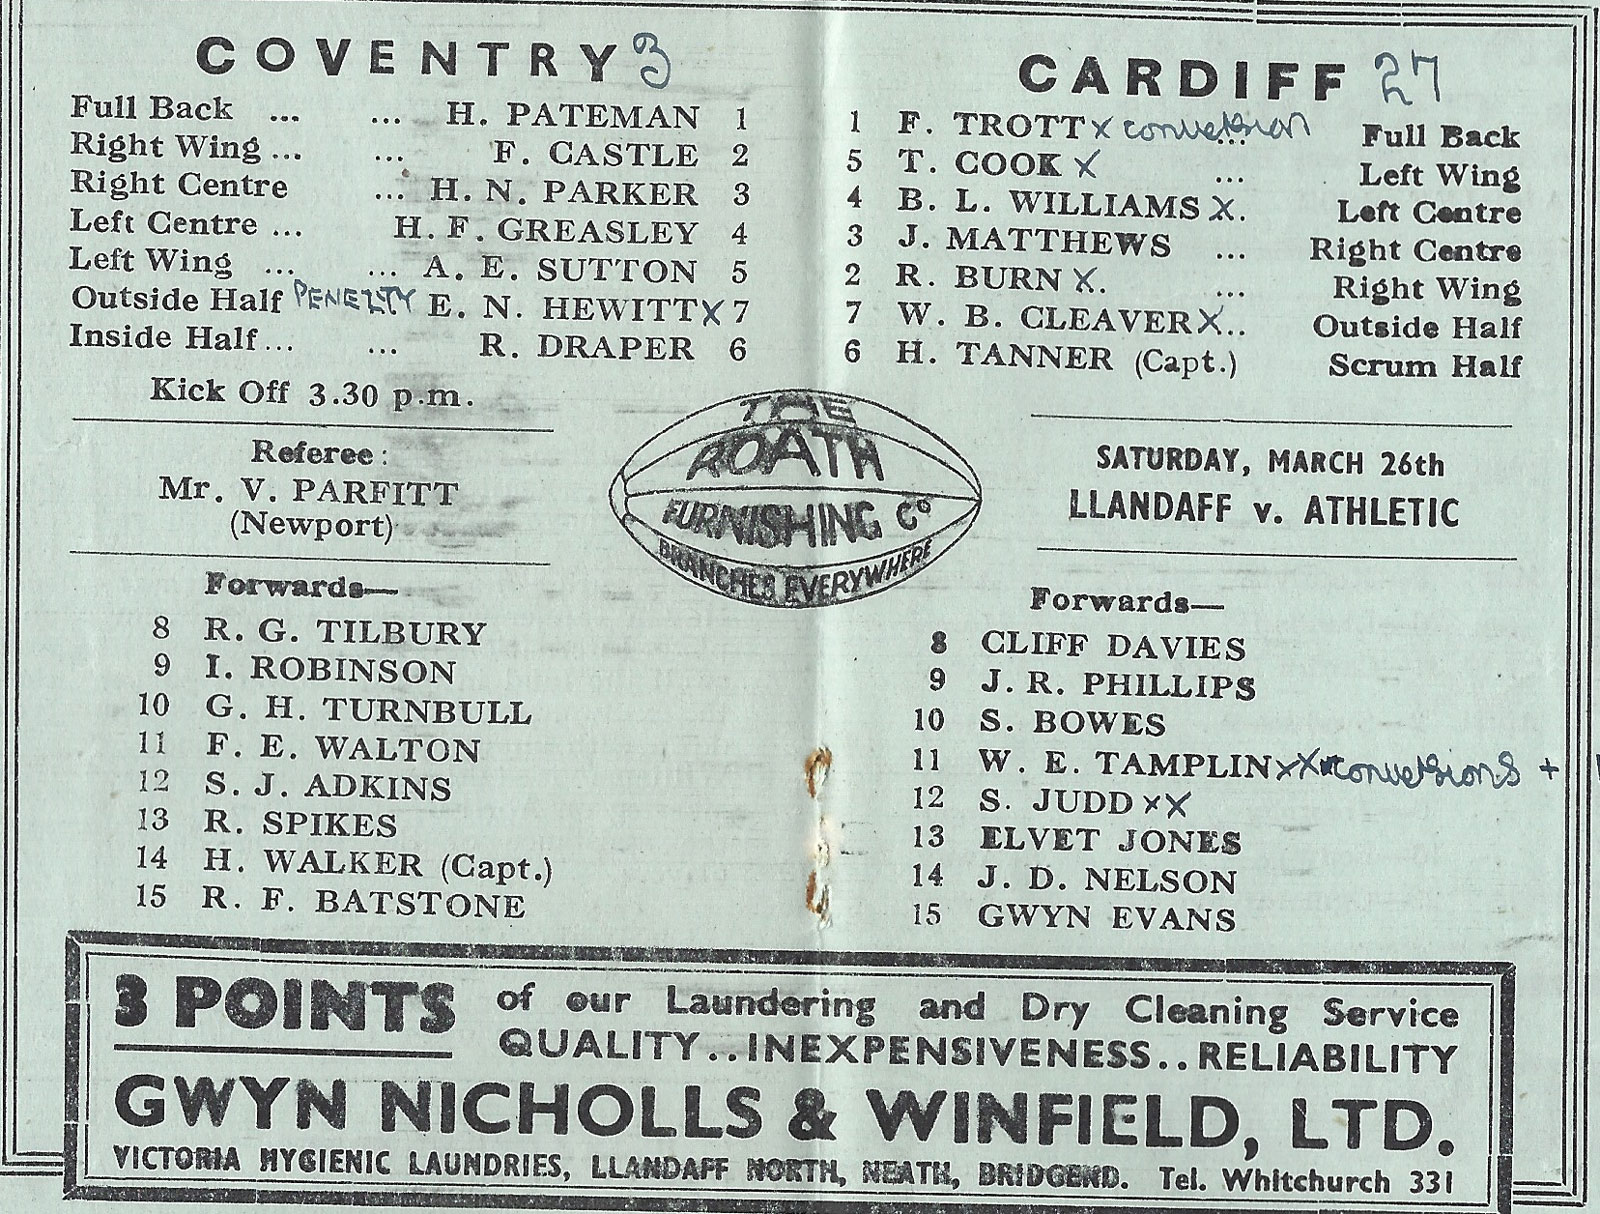 COVENTRY 3
Full Back ... ... H. PATEMAN 1
Right Wing ... ... F. CASTLE 2
Right Centre ... H. N. PARKER 3
Left Centre ... H. F. GREASLEY 4
Left Wing ... ... A. E. SUTTON 5
Outside Half PENELTY E. N. HEWITT X 7
Inside Half ... ... R. DRAPER 6
Kick Off 3.30 p.m.
Referee:
Mr. V. PARFITT
(Newport)
Forwards—
8 R. G. TILBURY
9 I. ROBINSON
10 G. H. TURNBULL
11 F. E. WALTON
12 S. J. ADKINS
13 R. SPIKES
14 H. WALKER (Capt.)
15 R. F. BATSTONE
THE
ROATH
FURNISHING Co
BRANCHES EVERYWHERE
CARDIFF 27
1 F. TROTT x conversion ... Full Back
5 T. COOK X ... Left Wing
4 B. L. WILLIAMS X. Left Centre
3 J. MATTHEWS ... Right Centre
2 R. BURN X. ... Right Wing
7 W. B. CLEAVER X.. Outside Half
6 H. TANNER (Capt.) Scrum Half
SATURDAY, MARCH 26th
LLANDAFF v. ATHLETIC
Forwards—
8 CLIFF DAVIES
9 J. R. PHILLIPS
10 S. BOWES
11 W. E. TAMPLIN xX conversions +
12 S. JUDD xX
13 ELVET JONES
14 J. D. NELSON
15 GWYN EVANS
3 POINTS of our Laundering and Dry Cleaning Service
QUALITY..INEXPENSIVENESS..RELIABILITY
GWYN NICHOLLS & WINFIELD, LTD.
VICTORIA HYGIENIC LAUNDRIES, LLANDAFF NORTH, NEATH, BRIDGEND. Tel. Whitchurch 331